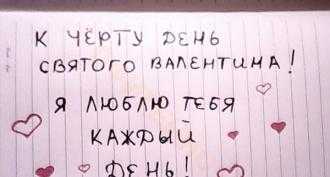 К ЧЁРТУ ДЕНЬ
СВЯТОГО ВАЛЕНТИНА!
Я ЛЮБЛЮ ТЕБЯ
КАЖДЫЙ
ДЕНЬ!